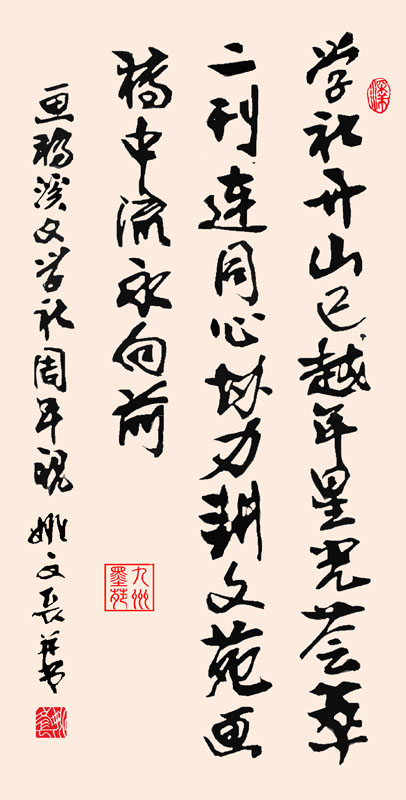 学社开山已越年星光荟萃
二刊连同心协力耕文苑画
稿中流永向前
画稿溪文学社周年 姚文长并书
九州
墨苑